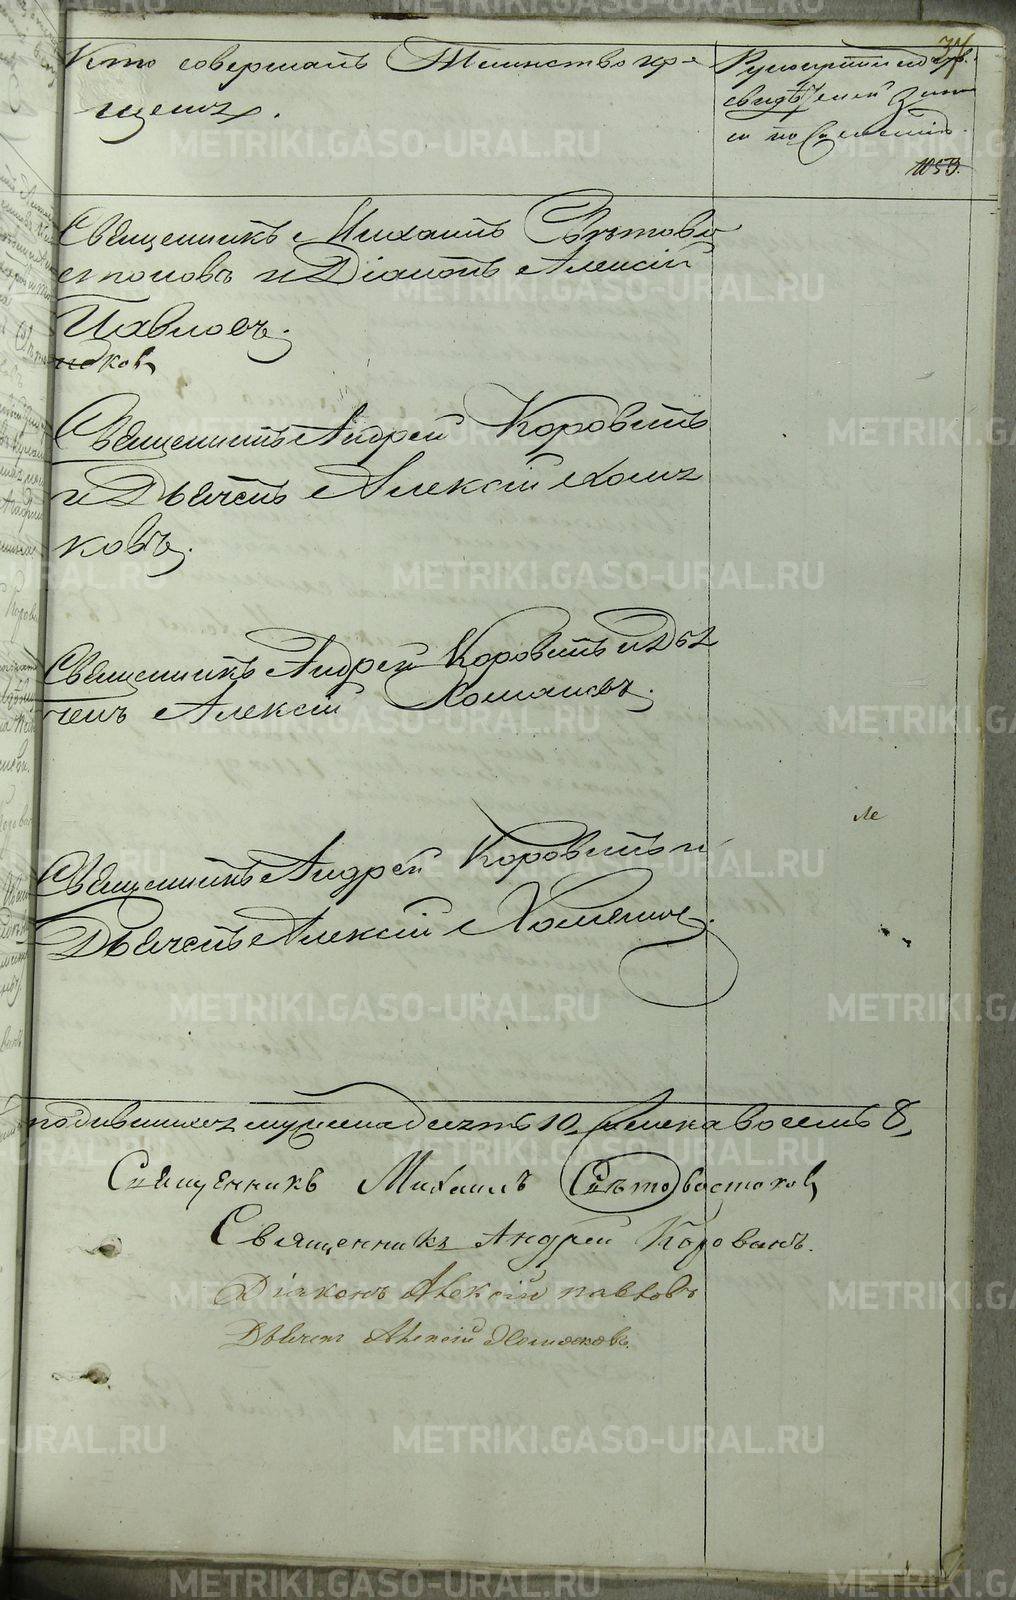 Кто совершалъ Таинство кре-
щенія.
Рукоприкладство
свидѣтелей записи
по желанію.
37
1053.
Священникъ Михаилъ Свѣтово
стоковъ и Діаконъ Алексій
Павловъ.
Священникъ Андрей Коровинъ
и Дьячекъ Алексій Хомя
ковъ.
Священникъ Андрей Коровинъ и Дья
чекъ Алексій Хомяковъ.
Священникъ Андрей Коровинъ и
Дьячекъ Алексій Хомяковъ.
родившихся мужеска десять 10, женска восемь 8,
Священникъ Михаилъ Свѣтовостоковъ
Священникъ Андрей Коровинъ.
Діаконъ Алексій Павловъ
Дьячекъ Алексій Хомяковъ.
METRIKI.GASO-URAL.RU